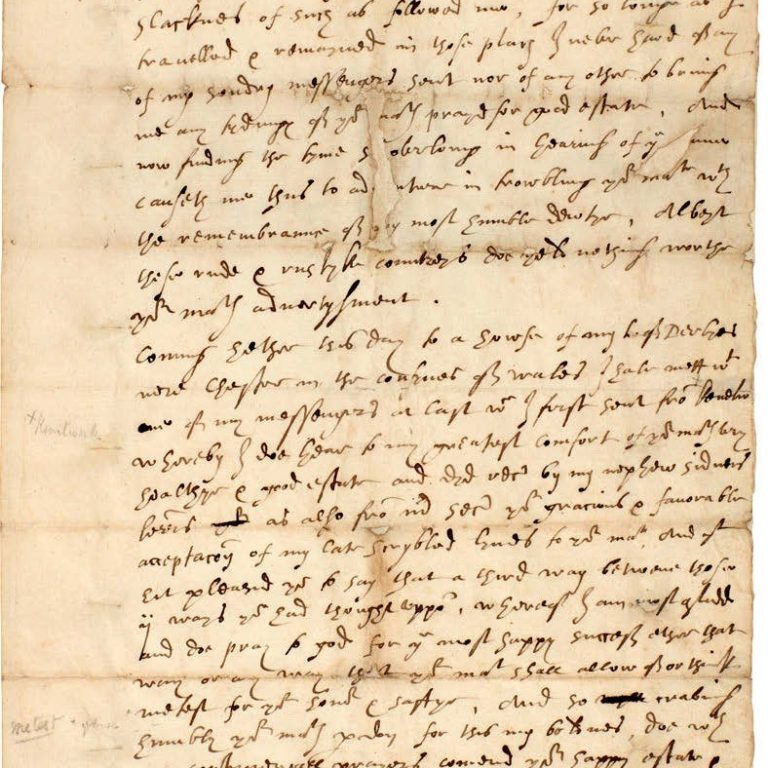 slacknes of such as followed me, for so longe as I
travelled & remayned in those places I never hard of any
of my sondry messengers sent nor of any other to bring
me any tydinges of yor mats prayd for good estate, And
now finding the tyme so overlong in hearing of yt
causeth me thus to adventure in trowbling yor matie wth
the remembrance of my most humble dewtye, Albeyt
these rude & rustyke countreys doe yeld nothing worthe
yor mats advertysment.
Coming hether this day to a howse of my L. of Derbyes
nere Chester in the confynes of wales I have mett wt
one of my messengers at last wch I first sent fro
wherby I doe hear to my greatest comfort of yor mats very
healthye & good estate and dyd rece by my nephew Sidneis
letters as also fro mr Secr yor gracious & favorable
acceptacon of my late scrybled lynes to yor matie, And yt
hit pleased yo to say that a third way betwene those
ij ways yo had thought uppo, wherof I am most gladd
and doe pray to god for ye most happy success ether that
way or any way that yor matie shall allow of or think
metest for yor honor & saftye, And so craving
humbly yor mats pardon for this my boldnes, doe wth
prayers comend yor happy estate &
metest